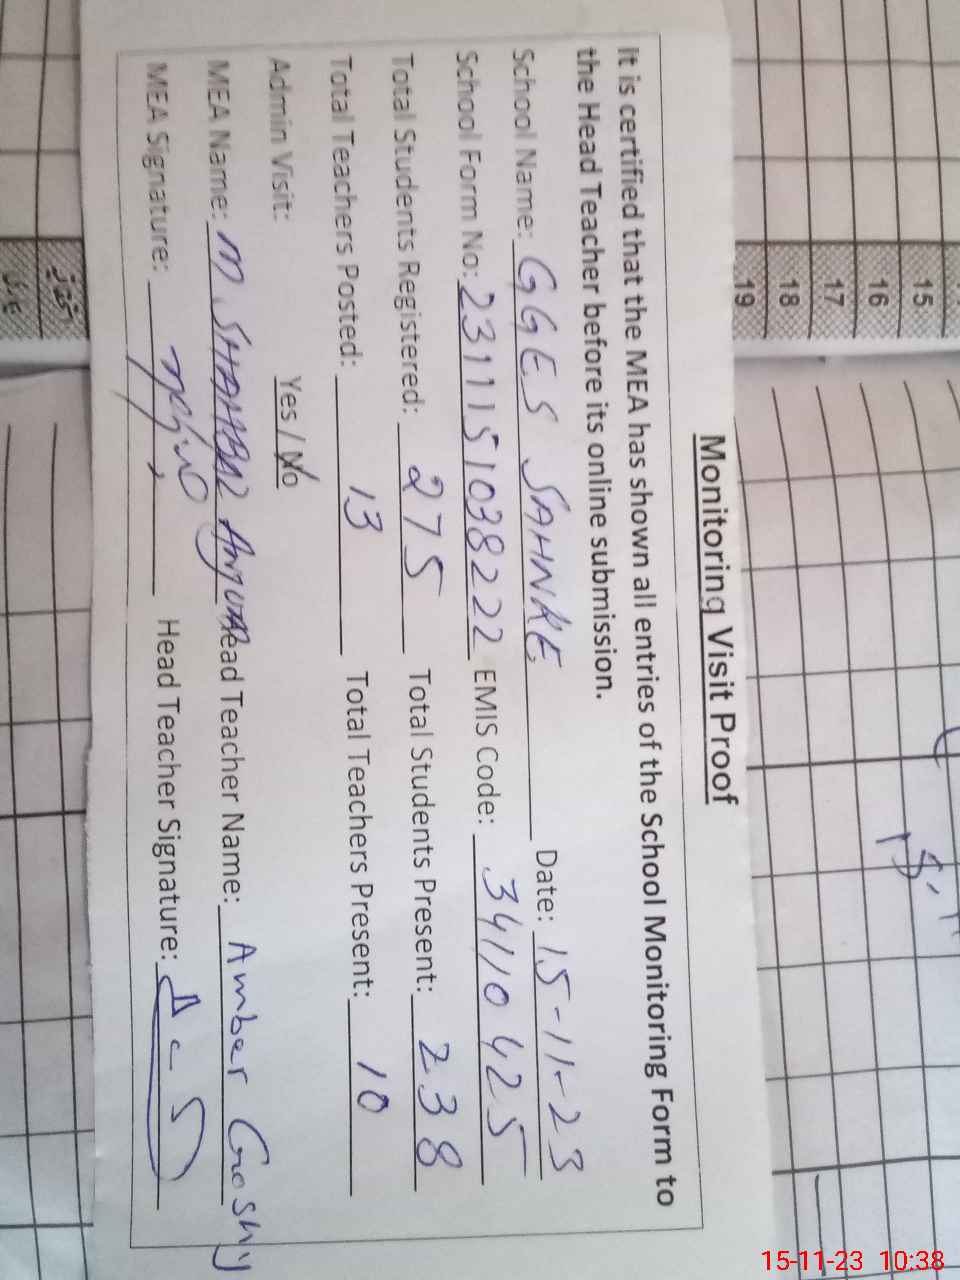 Monitoring Visit Proof
It is certified that the MEA has shown all entries of the School Monitoring Form to
the Head Teacher before its online submission.
School Name: GGES SAHNKE Date: 15-11-23
School Form No: 2311151038222 EMIS Code: 34110425
Total Students Registered: 275 Total Students Present: 238
Total Teachers Posted: 13 Total Teachers Present: 10
Admin Visit: Yes / No
MEA Name: M. SHAHBAZ Head Teacher Name: Amber Goshy
MEA Signature: Head Teacher Signature:
15
16
17
18
19
15-11-23 10:38